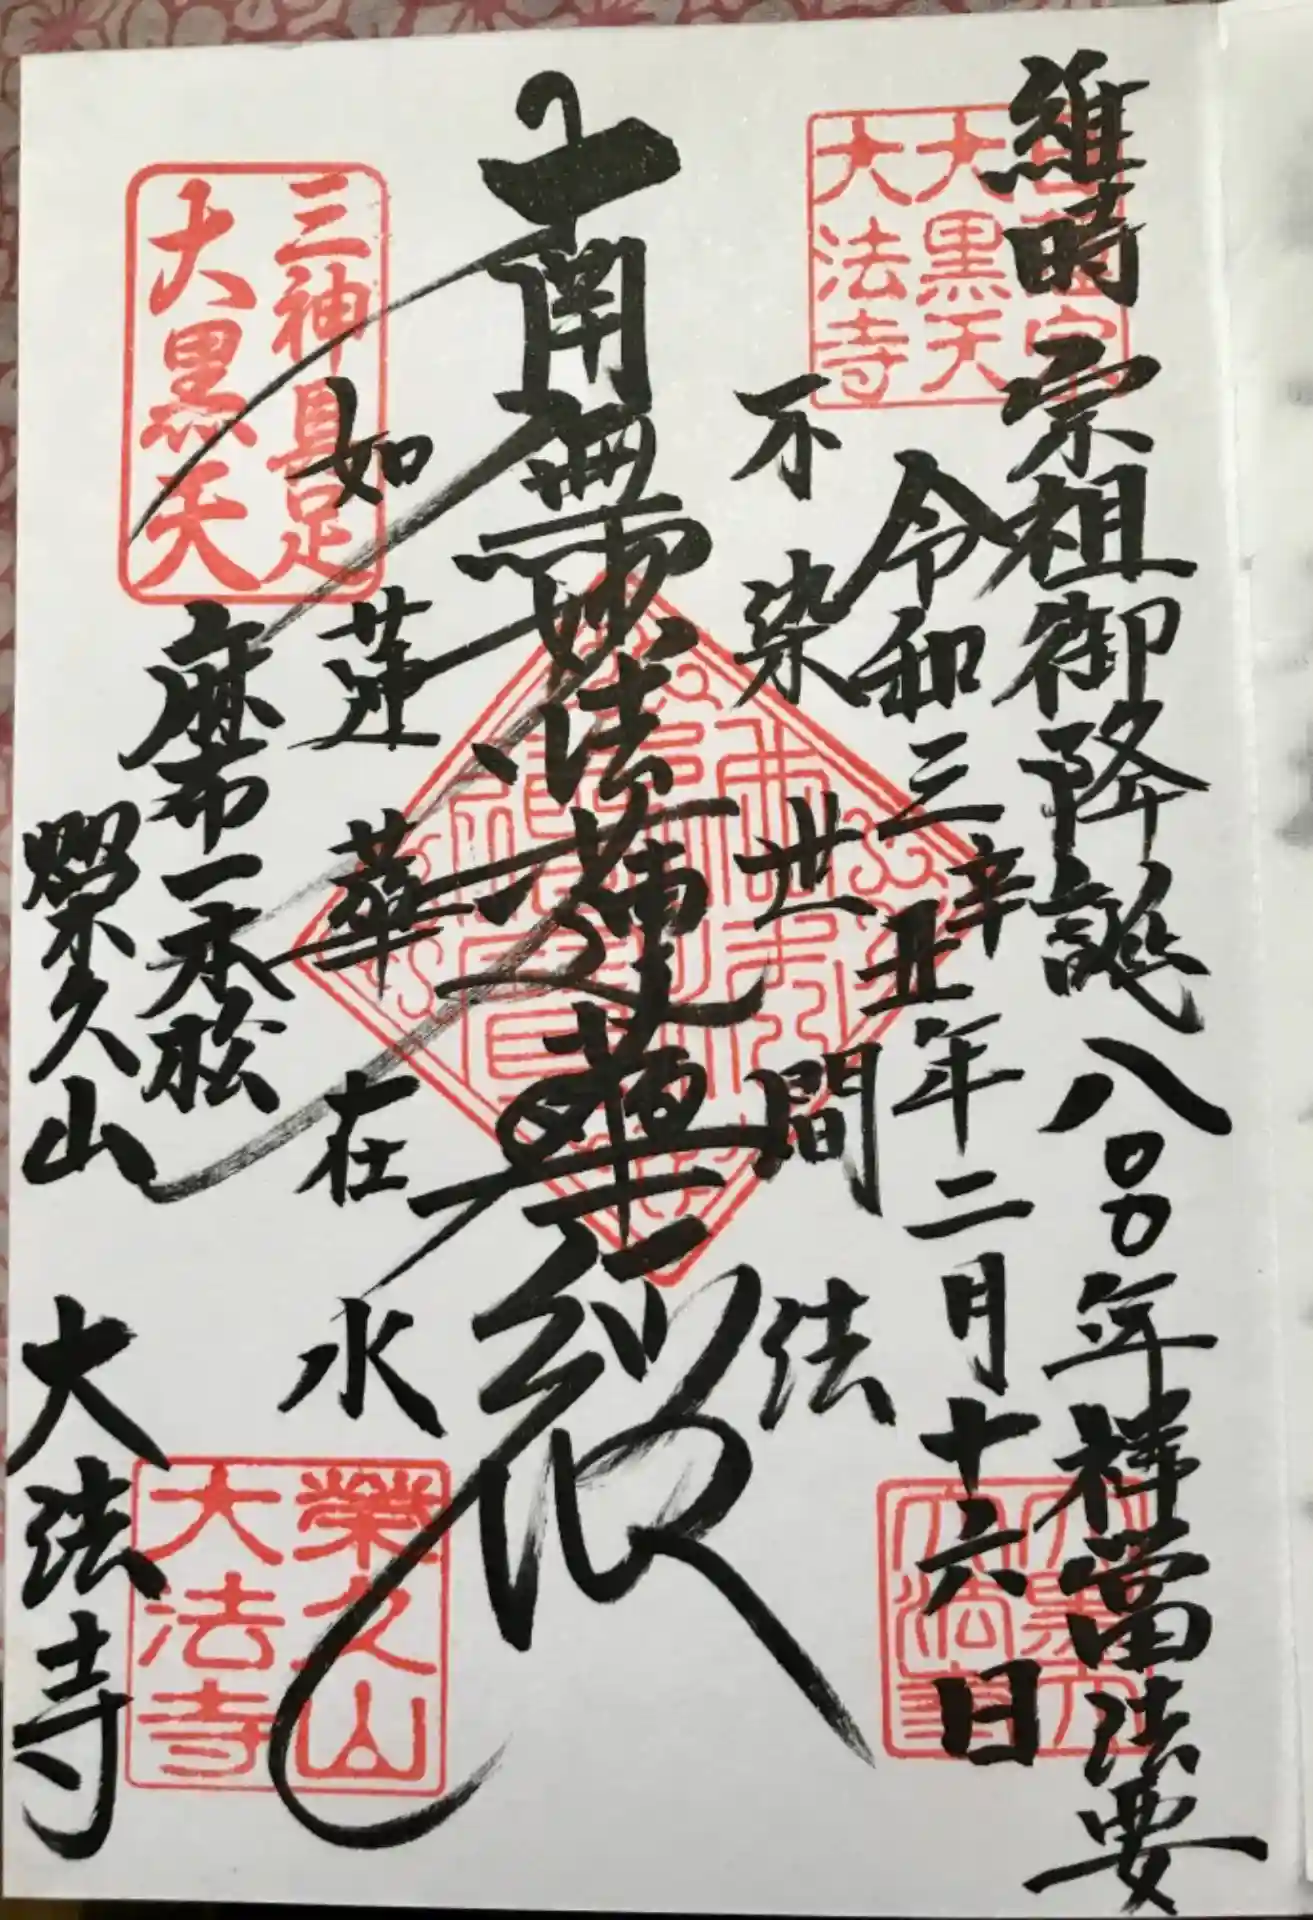 維時 宗祖御降誕八〇〇年祥當法要
令和三辛丑年二月十六日
不染世間法
南無妙法蓮華経
如蓮華在水
麻布一本松
榮久山 大法寺
大黒天
大法寺
三神具足
大黒天
榮久山
大法寺
大黒天
大法寺